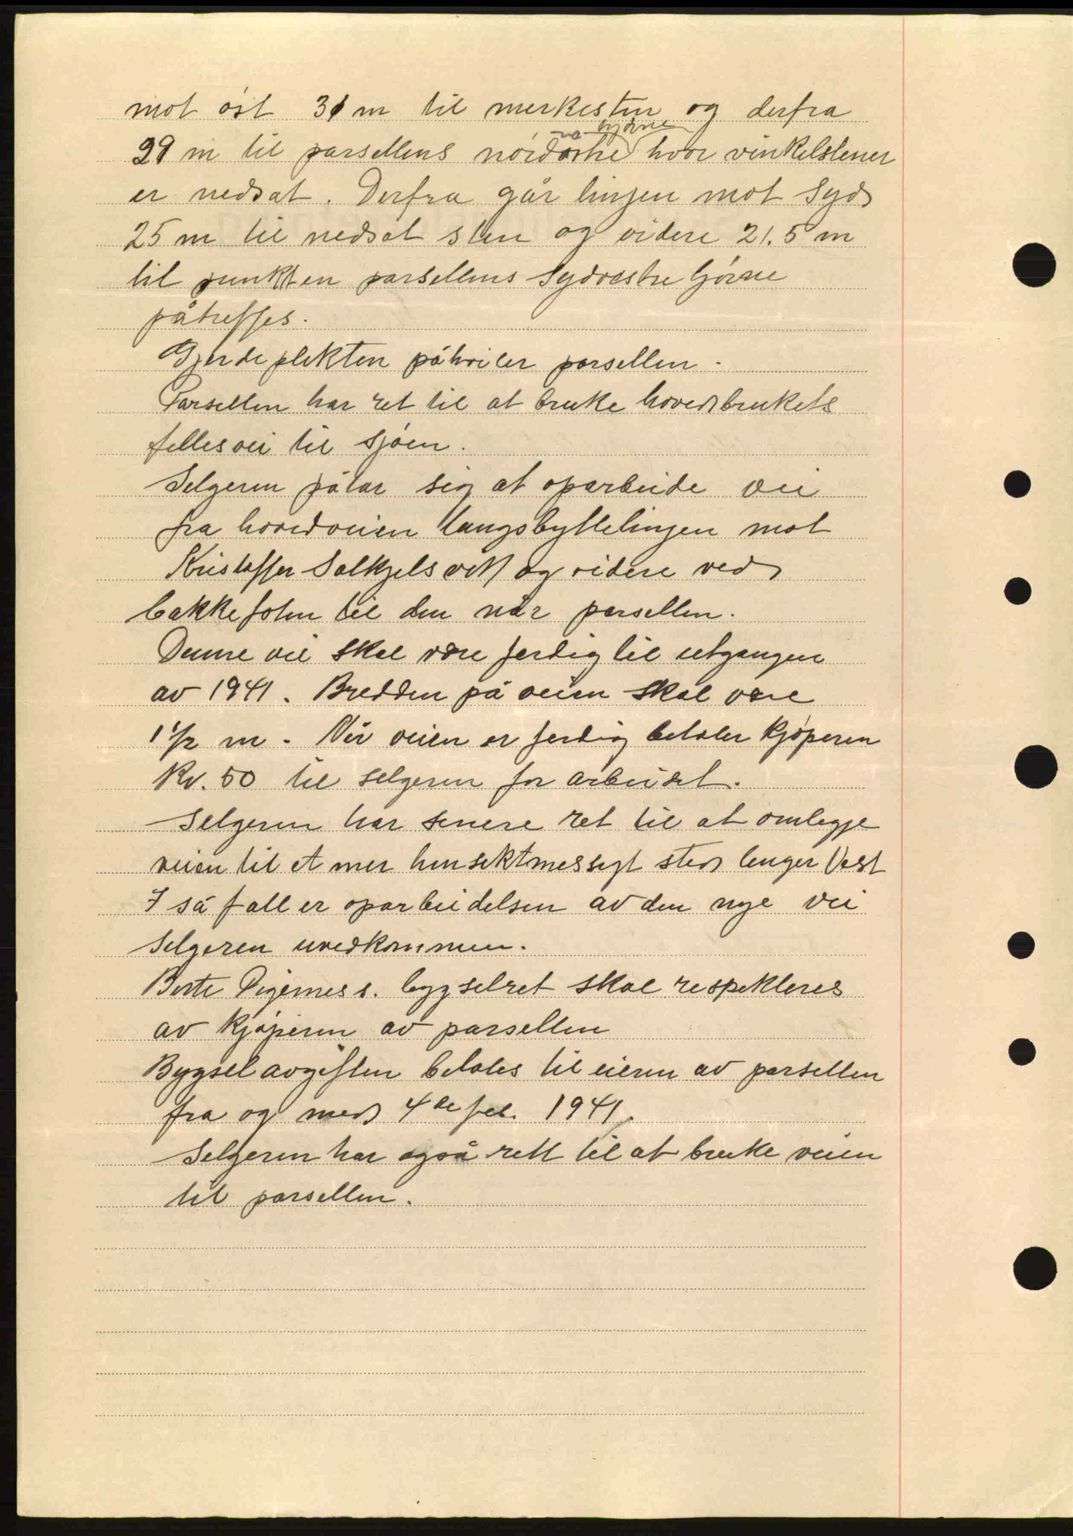 mot øst 31 m til merkesten og derfra
29 m til parsellens nordøstre hjørne hvor vinkelstener
er nedsat. Derfra går linjen mot Syd
25 m til nedsat sten og videre 21.5 m
til punkten parsellens Sydvestre hjørne
påtreffes.
Gjerdeplikten påhviler parsellen.
Parsellen har ret til at bruke hovedbrukets
fellesvei til sjøen.
Selgeren påtar sig at oparbeide vei
fra hovedveien langs byttelinjen mot
Kristoffer Salkjelsvik og videre ved
bakkefoten til den når parsellen.
Denne vei skal være ferdig til utgangen
av 1941. Bredden på veien skal være
1 1/2 m. Når veien er ferdig betaler kjøperen
Kr. 50 til selgeren for arbeidet.
Selgeren har senere ret til at omlegge
veien til et mer hensektmessigt sted lenger Vest
I så fall er oparbeidelsen av den nye vei
selgeren uvedkommen.
Berte bygselret skal respekteres
av kjøperen av parsellen
Bygselavgiften betales til eieren av parsellen
fra og med 4de feb. 1941.
Selgeren har også rett til at bruke veien
til parsellen.